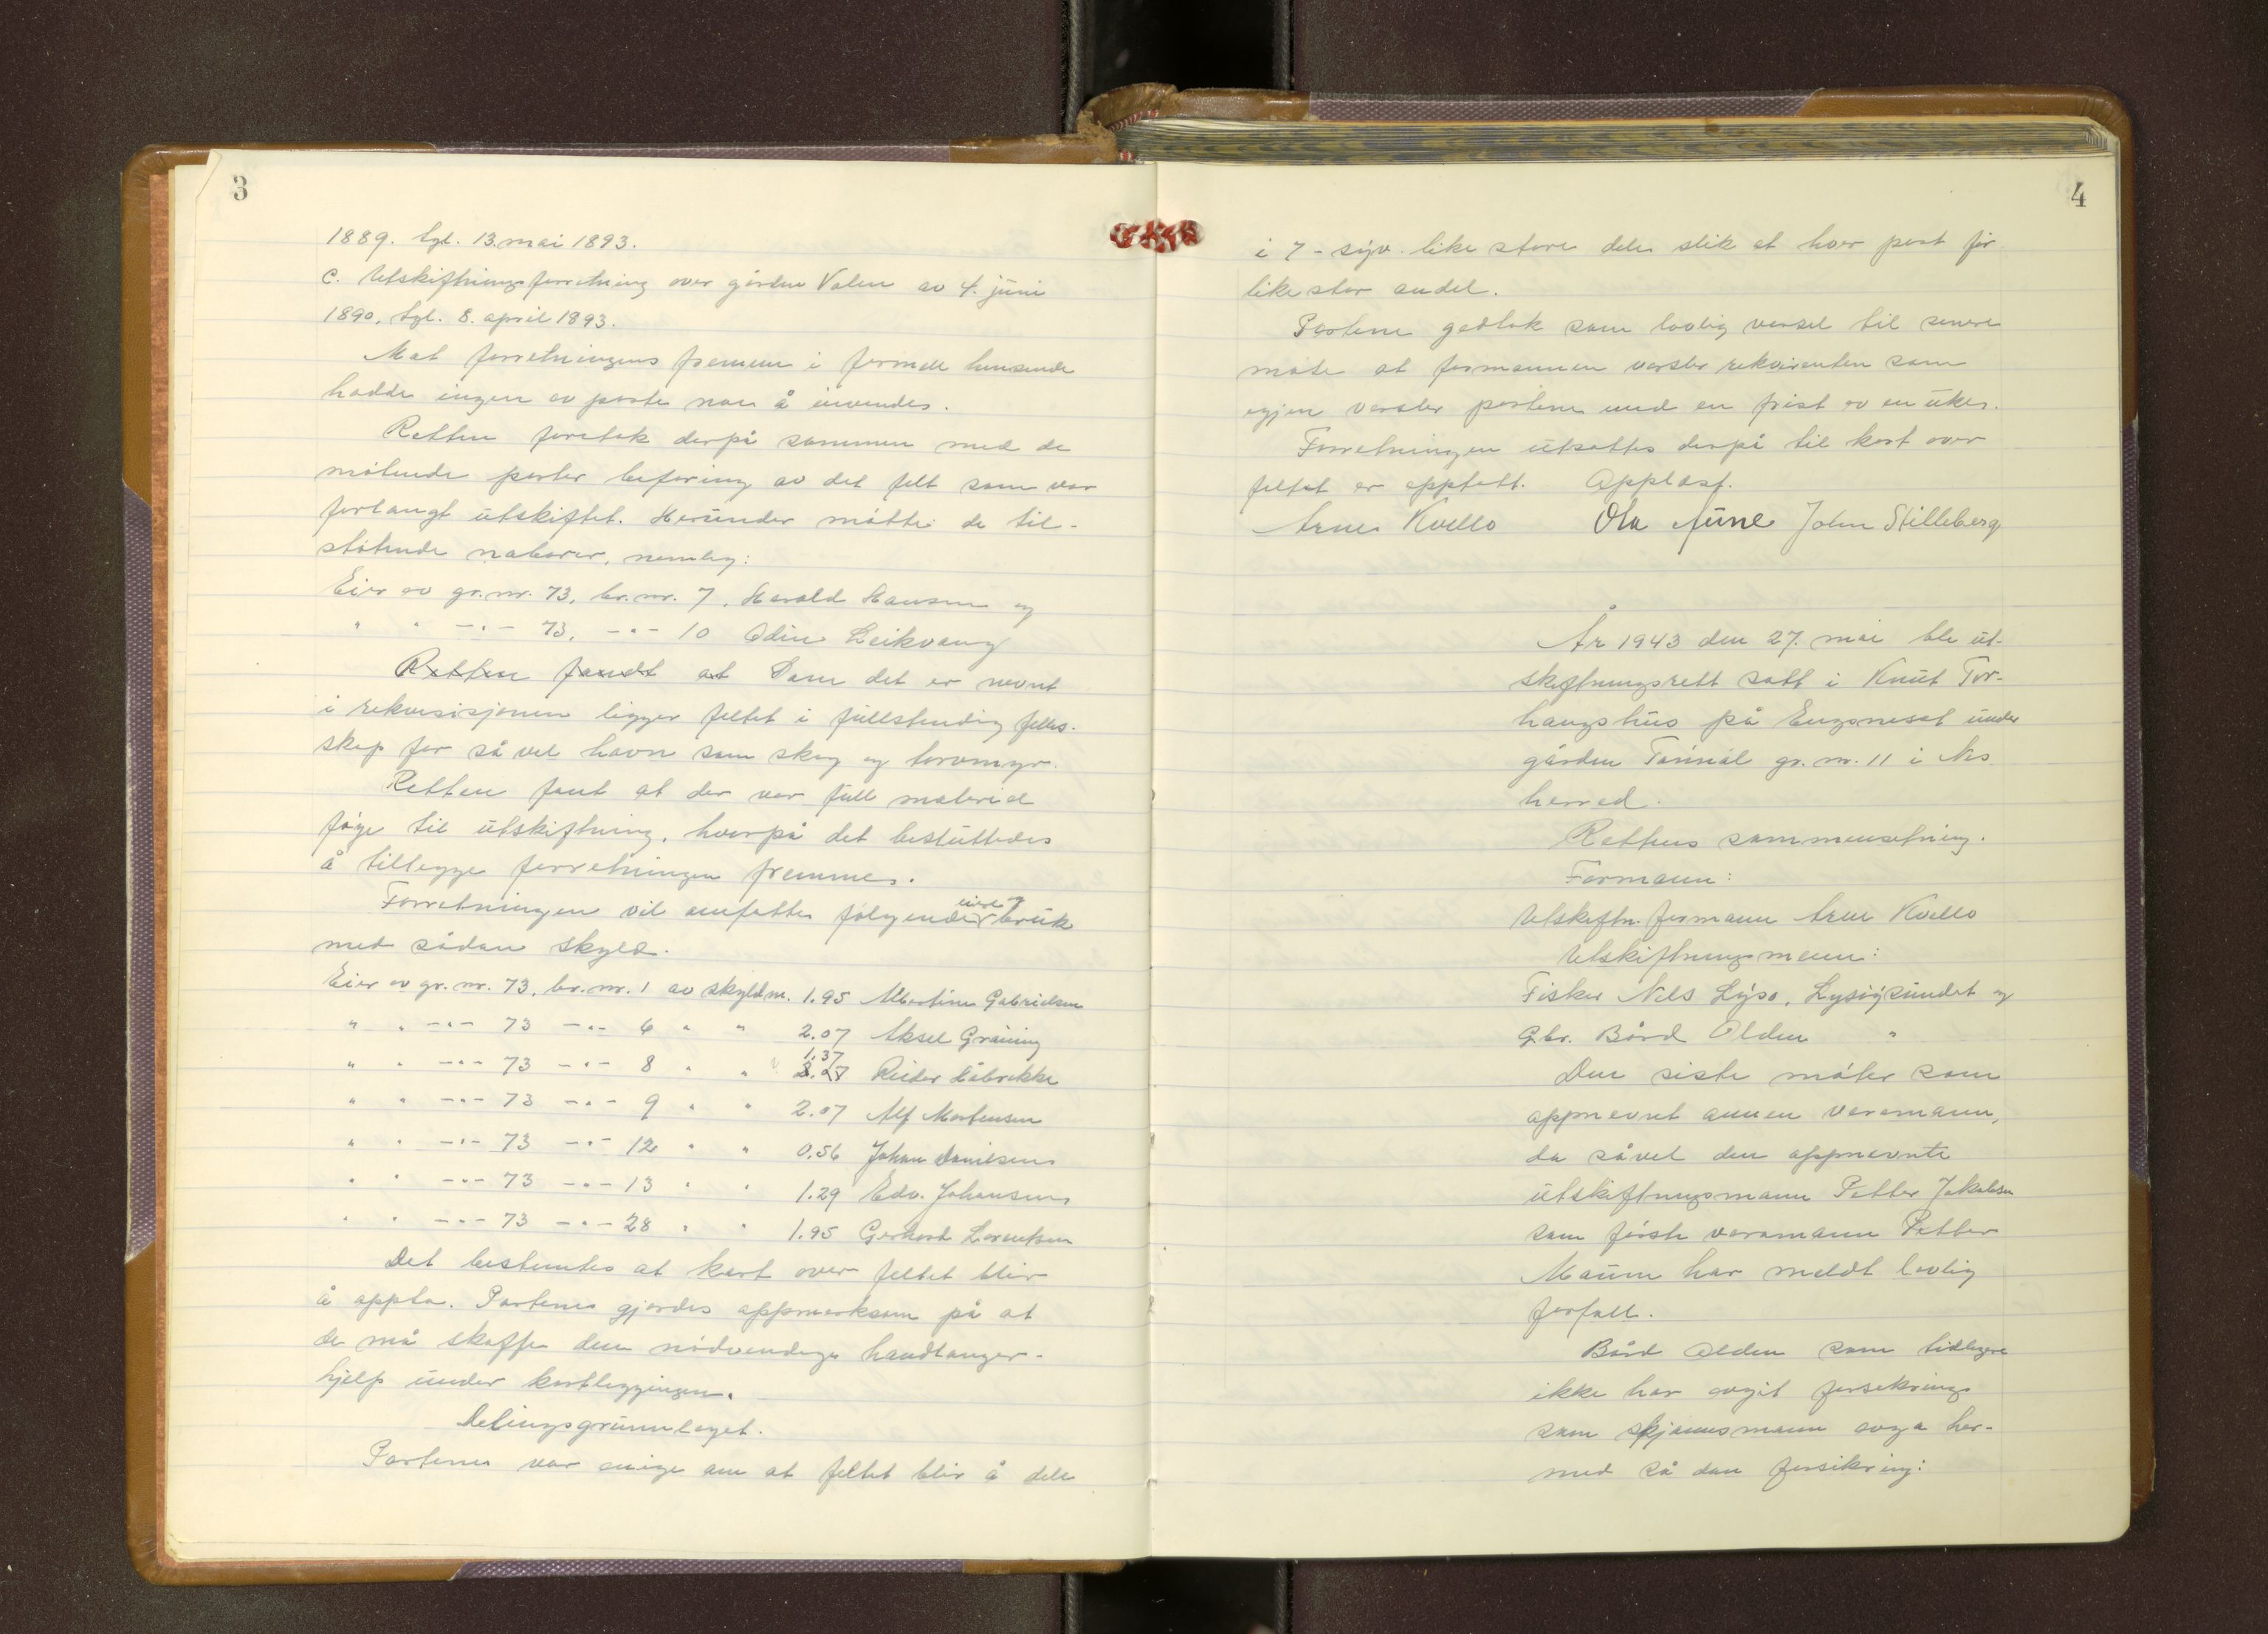 3
1889. tgl. 13. mai 1893.
c. Utskiftningsforretning over gården Valen av 4. juni
1890, tgl. 8. april 1893.
Mot forretningens fremme i formell henseende
hadde ingen av parter noe å invende.
Retten foretok derpå sammen med de
møtende parter befaring av det felt som var
forlangt utskiftet. Herunder møtte de til-
støtende naboer, nemlig:
Eier av gr.nr. 73, br.nr. 7, Harald Hansen og
" " -"- 73, -"- 10 Odin Leikvang
Retten fandt at Som det er nevnt
i rekvisisjonen ligger feltet i fullstendig felles-
skap for så vel havn som skog og torvmyr.
Retten fant at der var full materiel
føye til utskiftning, hvorpå det besluttedes
å tillegge forretningen fremme.
Forretningen vil omfatte følgende bruk
med sådan skyld.
Eier av gr.nr. 73, br.nr. 1 av skyldm. 1.95 Albertine Gabrielsen
" " -"- 73 -"- 6 " " 2.07 Aksel Grøning
" " -"- 73 -"- 8 " " 1.37 Reidar
" " -"- 73 -"- 9 " " 2.07 Alf Mortensen
" " -"- 73 -"- 12 " " 0.56 Johan Danielsen
" " -"- 73 -"- 13 " " 1.29 Edv. Johansen
" " -"- 73 -"- 28 " " 1.95 Gerhard Lorentsen
Det bestemtes at kart over feltet blir
å oppta. Partene gjordes oppmerksom på at
de må skaffe den nødvendige handtanger-
hjelp under kartleggingen.
Delingsgrunnlaget.
Partene var enige om at feltet blir å dele
4
i 7 - syv like store deler slik at hver part får
like stor andel.
Partene godtok som lovlig varsel til senere
møte at formannen varsler rekvirenten som
igjen varsler partene med en frist av en uke.
Forretningen utsattes derpå til kart over
feltet er opptatt. Opplest.
Arne Kvello Ola Aune John Stilleberg
År 1943 den 27. mai ble ut-
skiftningsrett satt i Knut Tor-
haugs hus på Engsneset under
gården Tønnøl gr.nr. 11 i Nes
herred.
Rettens sammensetning.
Formann:
Utskiftn.formann Arne Kvello
Utskiftningsmenn:
Fisker Nils Lysø, Lysøysundet og
Gbr. Bård Olden "
Den siste møter som
oppnevnt annen varamann,
da såvel den oppnevnte
utskiftningsmann Petter Jakobsen
som første varamann Petter
Maum har meldt lovlig
forfall.
Bård Olden som tidligere
ikke har avgit forsikring
som skjønnsmann avga her-
med så dan forsikring: